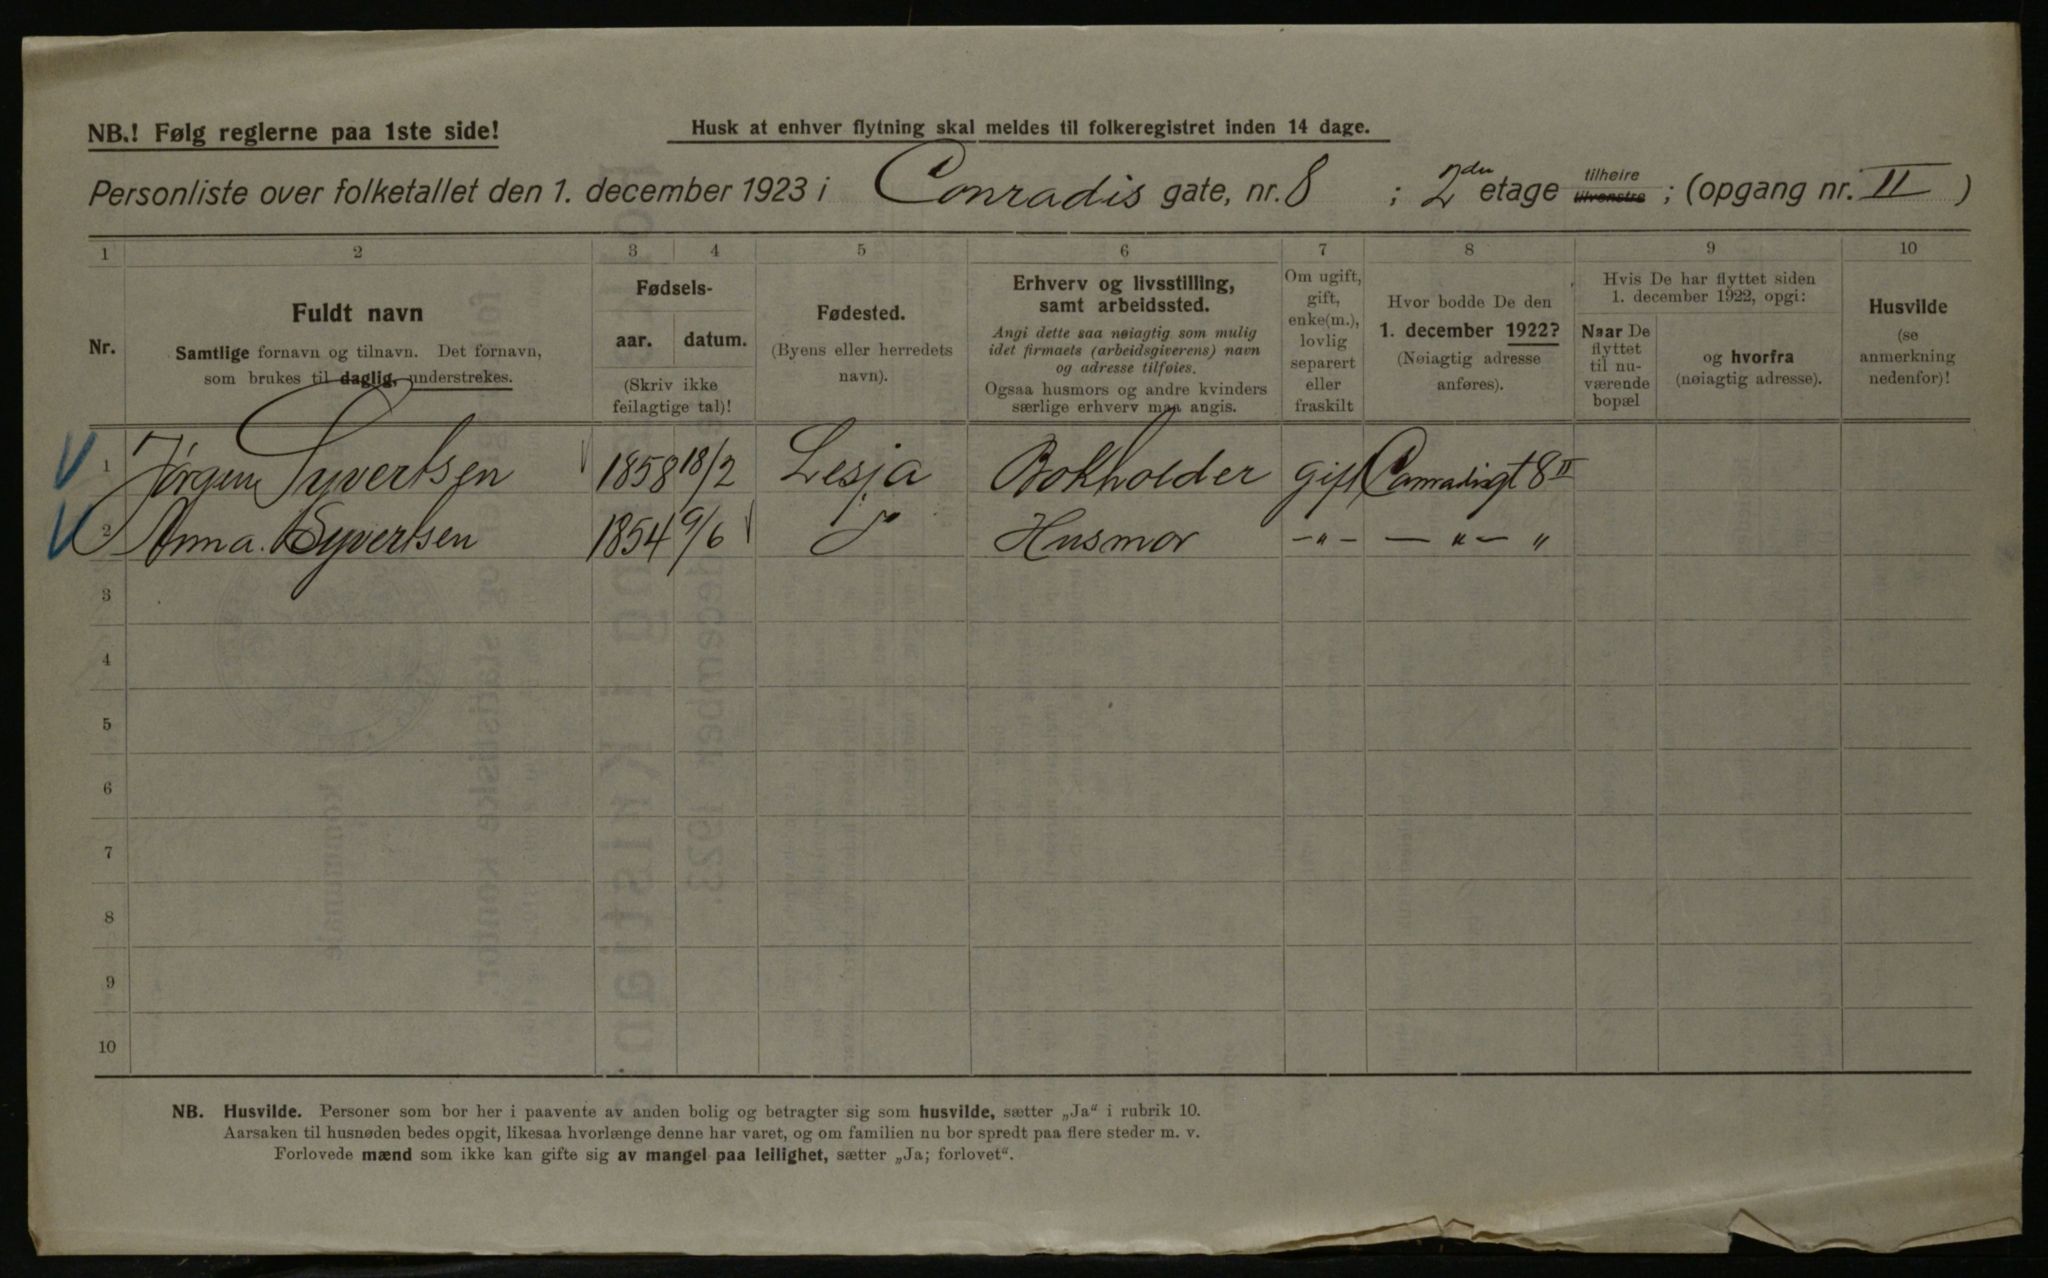 NB.! Følg reglerne paa 1ste side!
Husk at enhver flytning skal meldes til folkeregistret inden 14 dage.
Personliste over folketallet den 1. december 1923 i Conradis gate, nr. 8 ; 2den etage tilheire tilvenstre ; (opgang nr. II )
1 2 3 4 5 6 7 8 9 10
Nr.
Fuldt navn
Samtlige fornavn og tilnavn. Det fornavn,
som brukes til daglig, understrekes.
Fødsels-
aar. datum.
(Skriv ikke
feilagtige tal)!
Fødested.
(Byens eller herredets
navn).
Erhverv og livsstilling,
samt arbeidssted.
Angi dette saa nøiagtig som mulig
idet firmaets (arbeidsgiverens) navn
og adresse tilføies.
Ogsaa husmors og andre kvinders
særlige erhverv maa angis.
Om ugift,
gift,
enke(m.),
lovlig
separert
eller
fraskilt
Hvor bodde De den
1. december 1922?
(Nøiagtig adresse
anføres).
Hvis De har flyttet siden
1. december 1922, opgi:
Naar De
flyttet
til nu-
værende
bopæl
og hvorfra
(nøiagtig adresse).
Husvilde
(se
anmerkning
nedenfor)!
1 Jørgen Syvertsen 1858 18/2 Lesja Bokholder gift Conradisgt 8 II
2 Anna Syvertsen 1854 9/6 Husmor -"- - " - "
3
4
5
6
7
8
9
10
NB. Husvilde. Personer som bor her i paavente av anden bolig og betragter sig som husvilde, sætter „Ja“ i rubrik 10.
Aarsaken til husnøden bedes opgit, likesaa hvorlænge denne har varet, og om familien nu bor spredt paa flere steder m. v.
Forlovede mænd som ikke kan gifte sig av mangel paa leilighet, sætter „Ja; forlovet“.